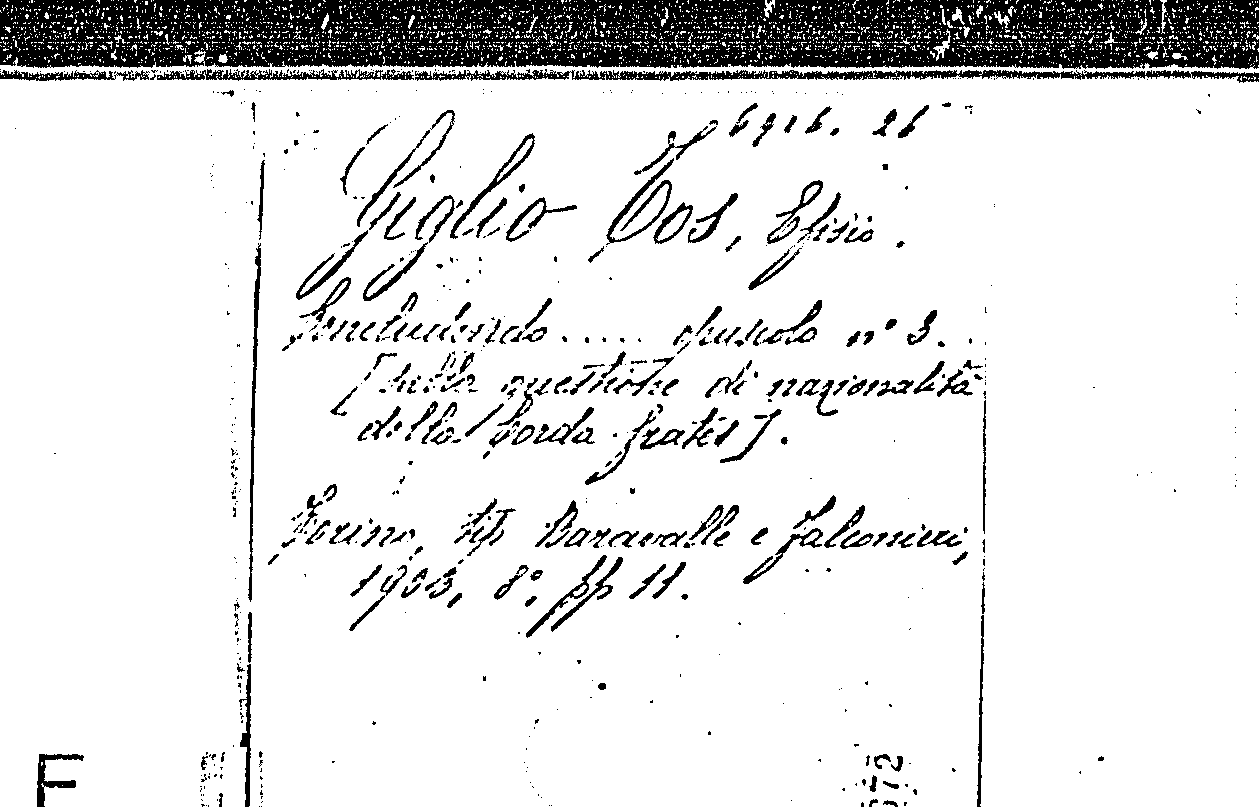 6916. 26
Giglio Tos, Efisio.
Concludendo..... opuscolo nº 3.
[sulla questione di nazionalità
della Corda fratres].
Torino, tip Baravalle e Falconieri,
1903, 8º, pp 11.
E
572